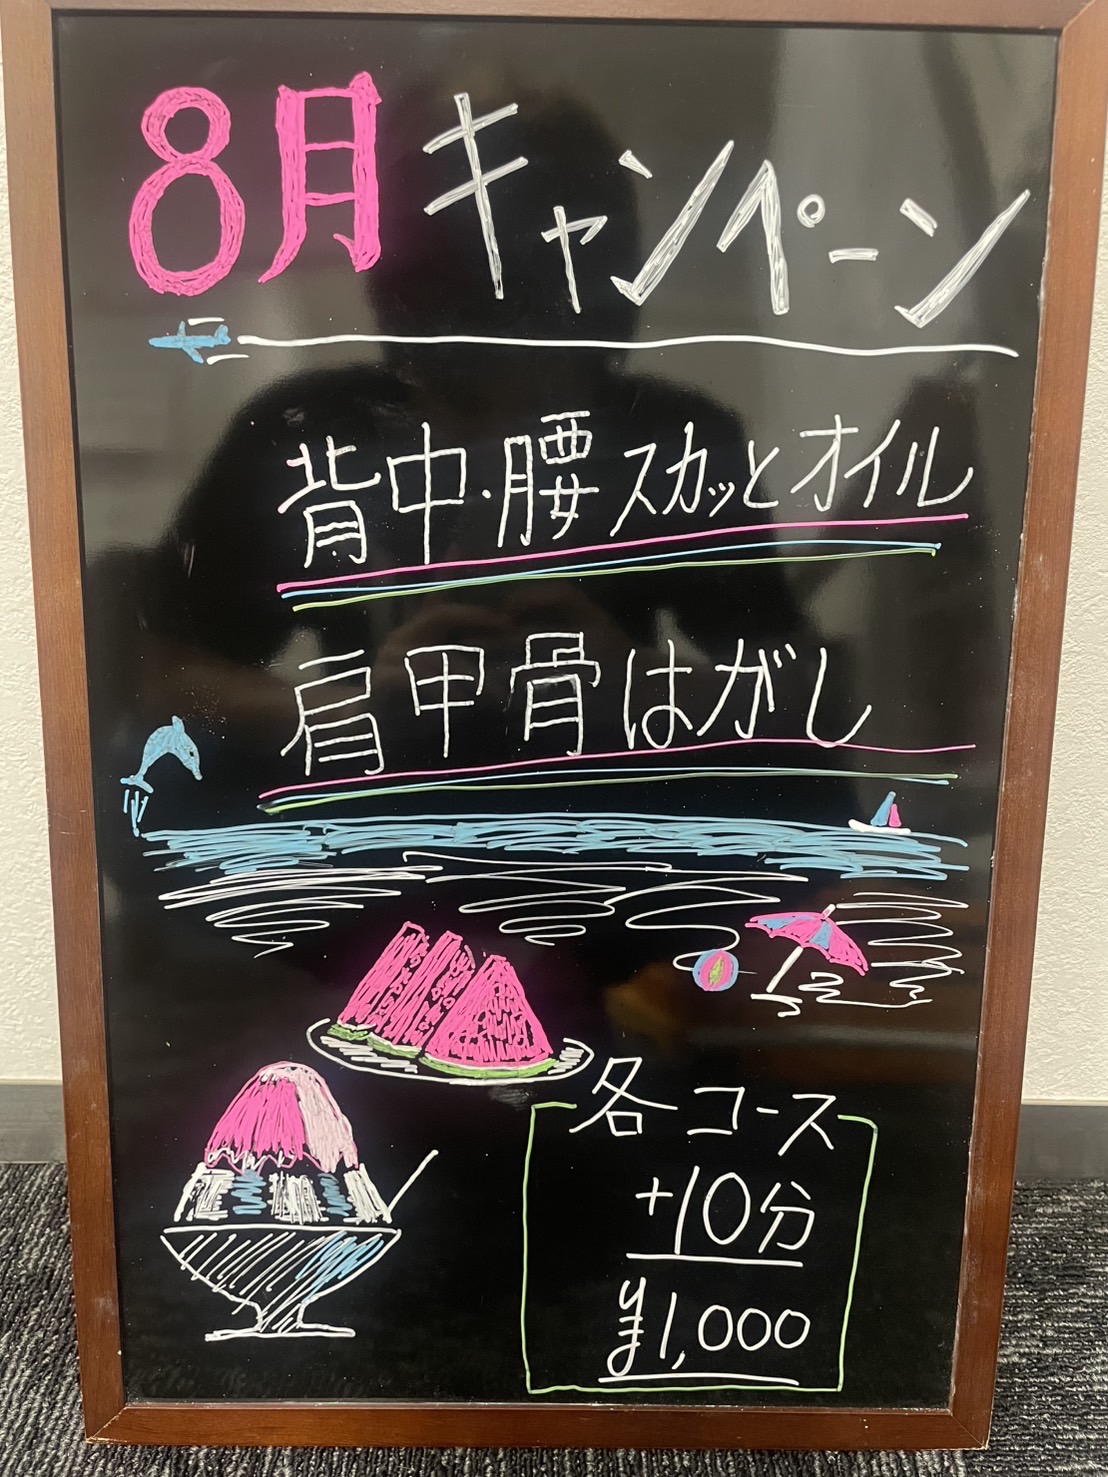 8月キャンペーン
背中・腰スカッとオイル
肩甲骨はがし
各コース
+10分
¥1,000